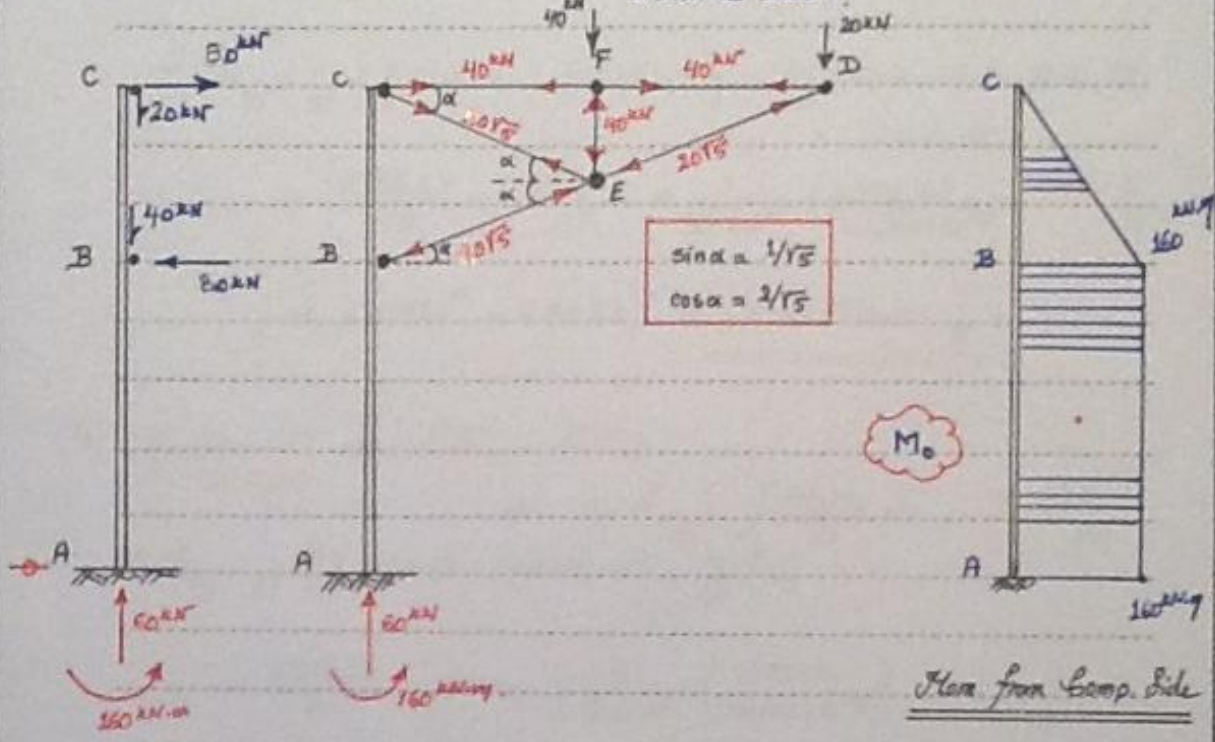 40 kN
20 kN
80 kN
C
20 kN
40 kN
B
80 kN
A
60 kN
160 kN.m
C
40 kN
F
40 kN
D
α
40 kN
20√5
α
α
E
B
α
40√5
sin α = 1/√5
cos α = 2/√5
A
60 kN
160 kN.m
C
160 kN.m
B
M₀
A
160 kN.m
Mom. from Comp. Side